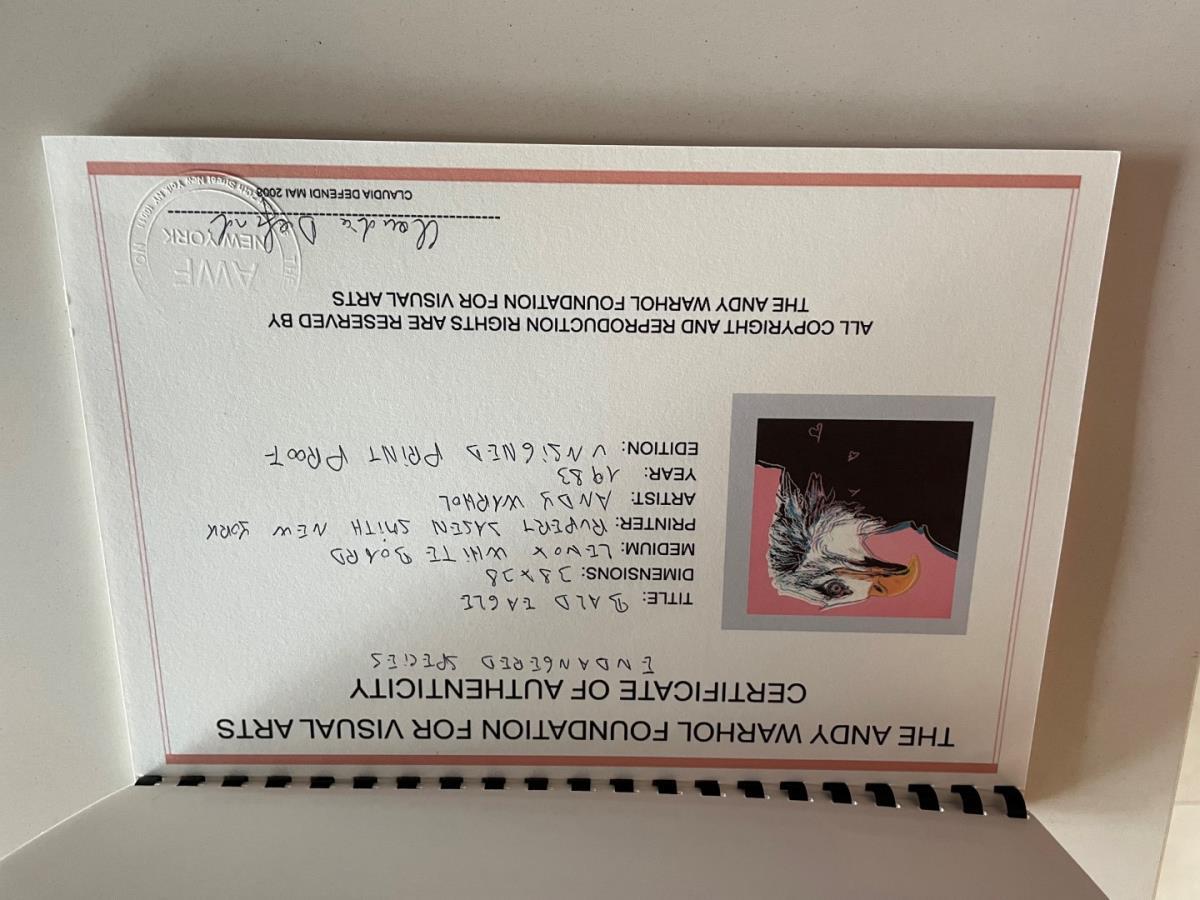 THE ANDY WARHOL FOUNDATION FOR VISUAL ARTS
CERTIFICATE OF AUTHENTICITY
ENDANGERED SPECIES
TITLE: BALD EAGLE
DIMENSIONS: 38x38
MEDIUM: LENOX WHITE BOARD
PRINTER: RUPERT JASEN SMITH NEW YORK
ARTIST: ANDY WARHOL
YEAR: 1983
EDITION: UNSIGNED PRINT PROOF
ALL COPYRIGHT AND REPRODUCTION RIGHTS ARE RESERVED BY
THE ANDY WARHOL FOUNDATION FOR VISUAL ARTS
Claudia Defendi
CLAUDIA DEFENDI MAI 2008
AWF
NEW YORK
THE
Street New York NY 10011